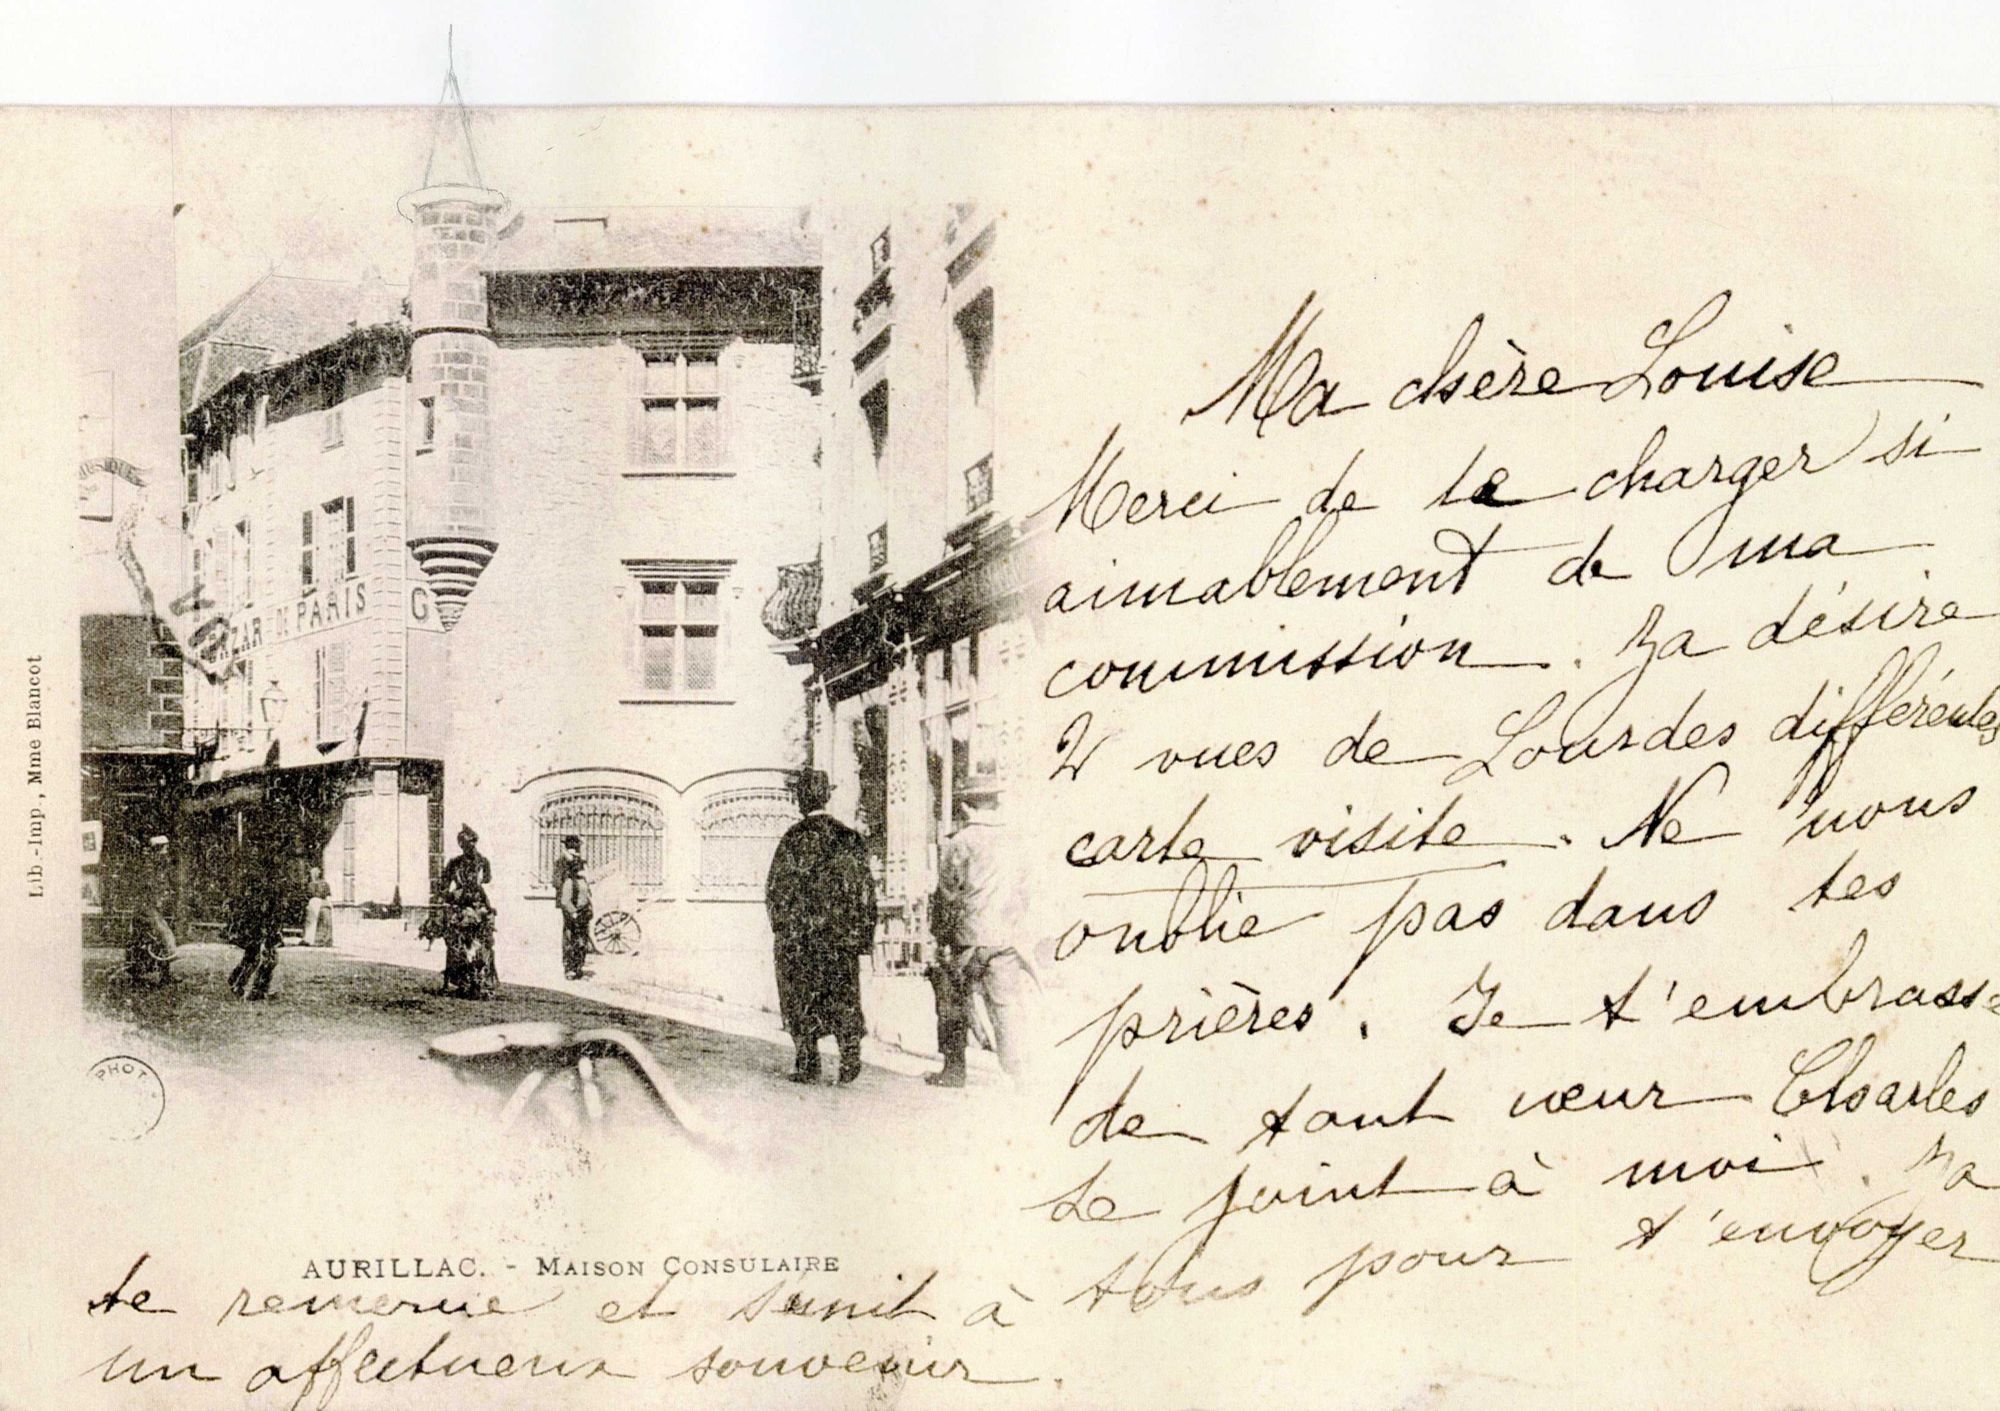 MUSIQUE
BAZAR DE PARIS
G
Lib.-Imp., Mme Blancot
PHOT.
AURILLAC. - MAISON CONSULAIRE
Ma chère Louise
Merci de te charger si
aimablement de ma
commission. Za désire
2 vues de Lourdes différentes
carte visite. Ne nous
oublie pas dans tes
prières. Je t'embrasse
de tout cœur Charles
se joint à moi. Za
te remercie et s'unit à tous pour t'envoyer
un affectueux souvenir.